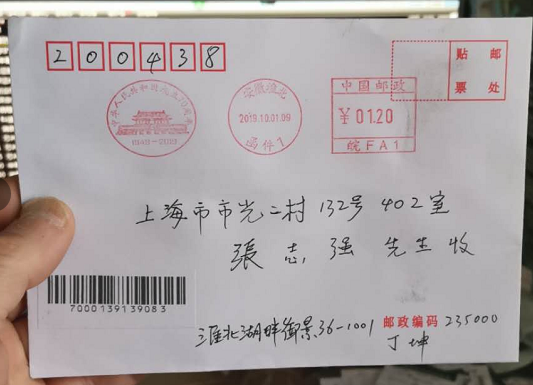 200438
贴 邮
票 处
中国邮政
¥ 01.20
皖 FA1
安徽淮北
2019.10.01.09
函件1
中华人民共和国成立70周年
1949-2019
上海市市光二村132号402室
張志强 先生收
7000139139083
淮北湖畔御景36-1001 邮政编码 235000
丁坤